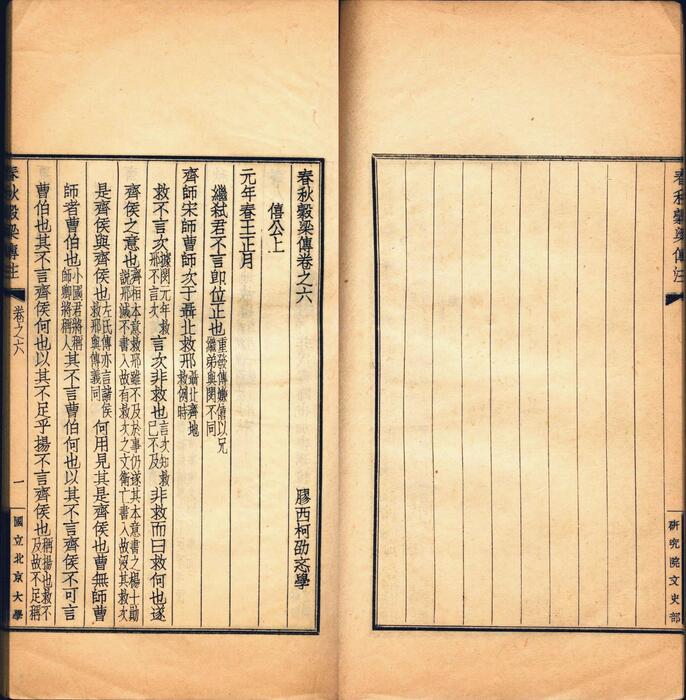 春秋穀梁傳注
研究院文史部
春秋穀梁傳卷之六
僖公上 膠西柯劭忞學
元年春王正月
繼弒君不言即位正也重發傳嫌僖以兄繼弟與閔不同
齊師宋師曹師次于聶北救邢聶北齊地救例時
救不言次據閔元年救邢不言次言次非救也言次知救已不及非救而曰救何也遂
齊侯之意也齊相本意救邢雖不及於事仍遂其本意書之楊士勛說邢滅不書入故有救次之文衛亡書入故沒其救次
是齊侯與齊侯也左氏傳亦言諸侯救邢與傳義同何用見其是齊侯也曹無師曹
師者曹伯也小國君將稱師卿將稱人其不言曹伯何也以其不言齊侯不可言
曹伯也其不言齊侯何也以其不足乎揚不言齊侯也稱揚也救不及故不足稱
春秋穀梁傳注 卷之六 一 國立北京大學